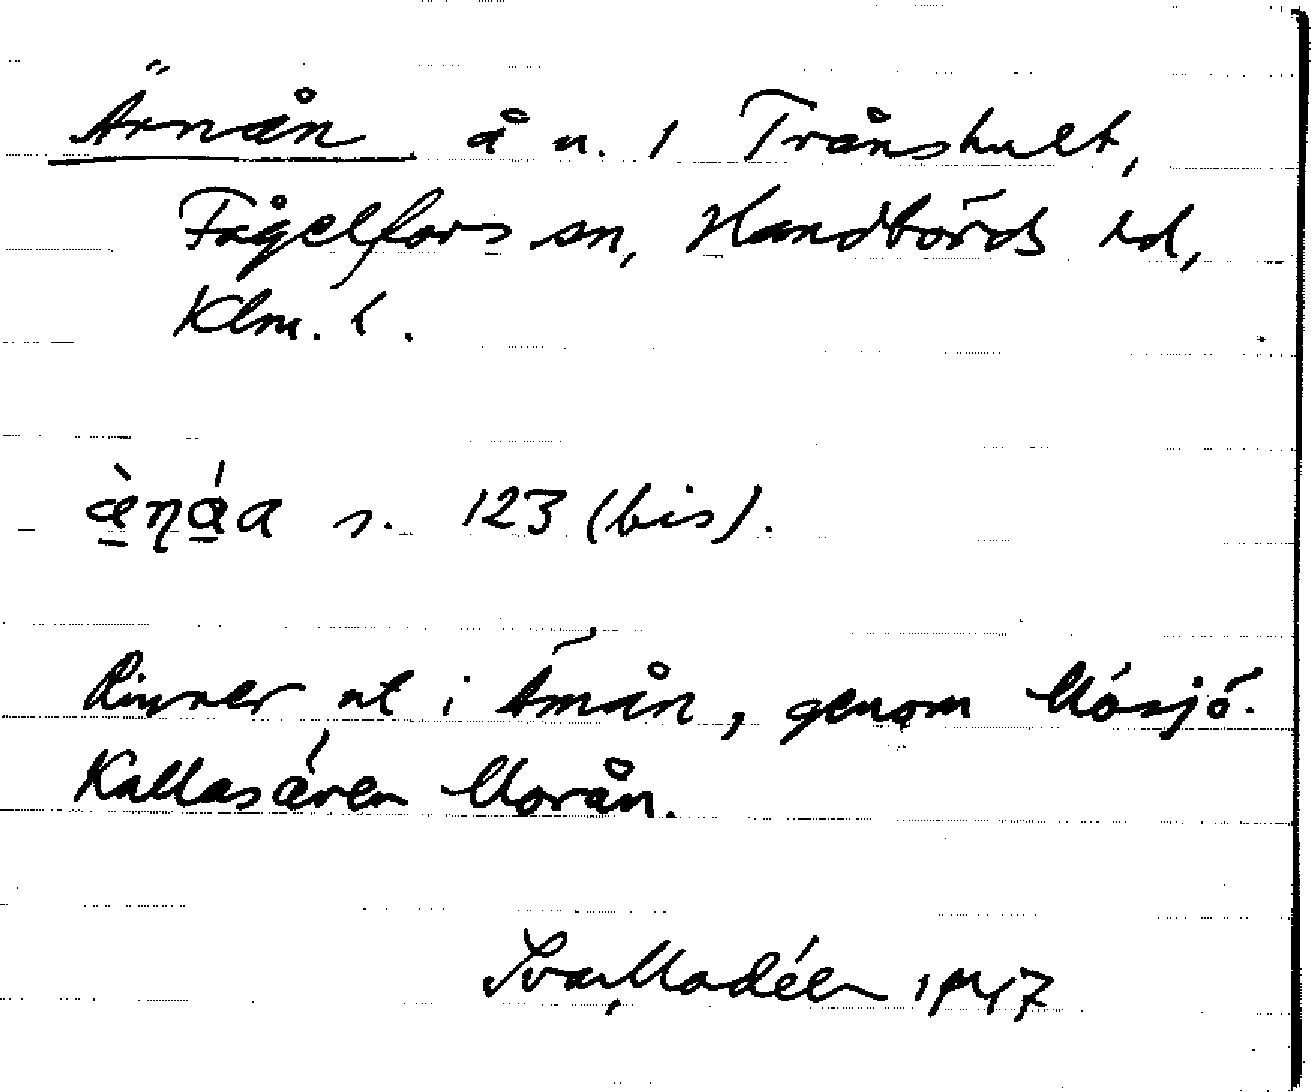 Ärnån å n. 1 Trånshult,
Fågelfors sn, Handbörds hd,
Klm. l.
æ̀ṇáa s. 123 (bis).
Rinner ut i Emån, genom Mósjö.
Kallas även Morån.
Ivar Modéer 1947